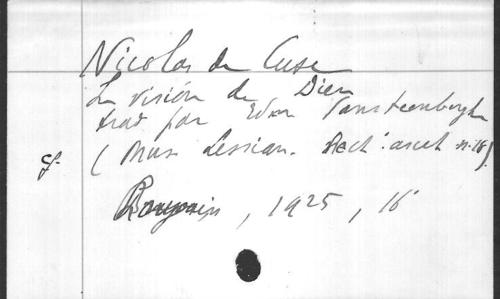 Nicolas de Cuse
La visión de Dieu
trad par Edm Vansteenberghe
(Mus. Lessian. Sect. ascet. n. 16).
cf.
Louvain, 1925, 16º